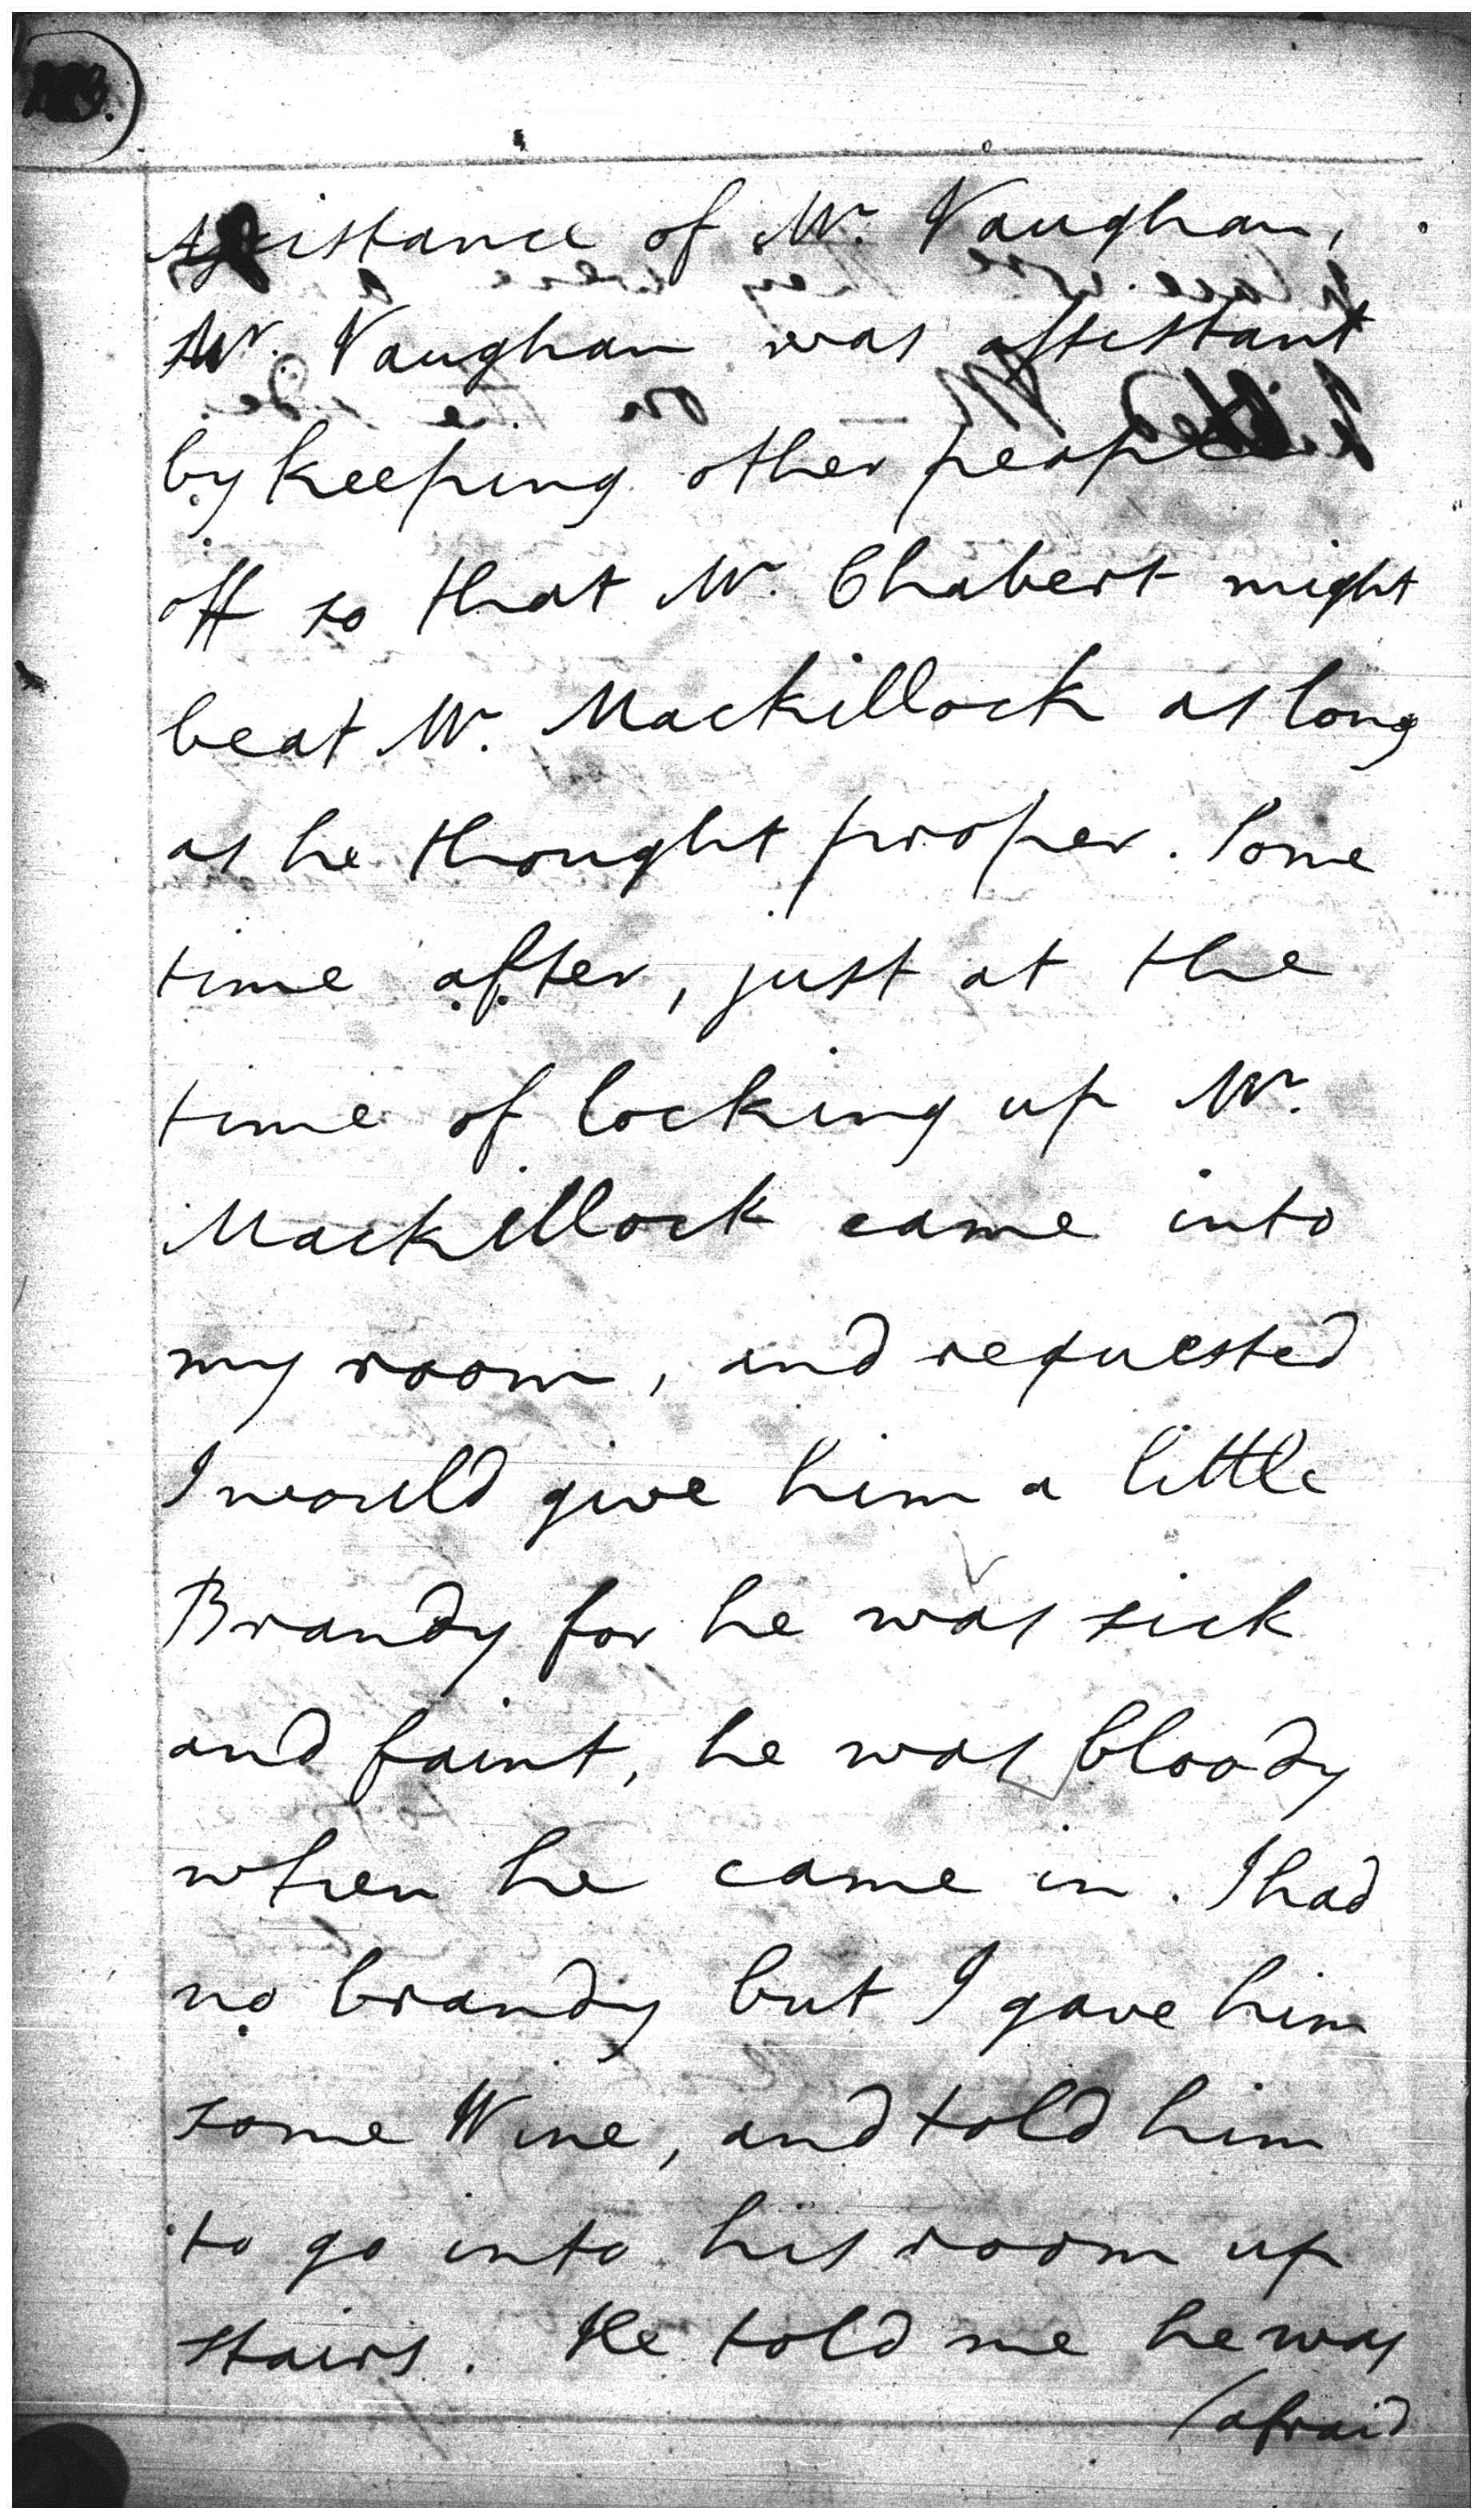 Assistance of Mr. Vaughan,
Mr. Vaughan was assistant
by keeping other people
off so that Mr. Chabert might
beat Mr. Mackillock as long
as he thought proper. Some
time after, just at the
time of locking up Mr.
Mackillock came into
my room, and requested
I would give him a little
Brandy for he was sick
and faint, he was bloody
when he came in. I had
no brandy but I gave him
some Wine, and told him
to go into his room up
stairs. He told me he was
(afraid